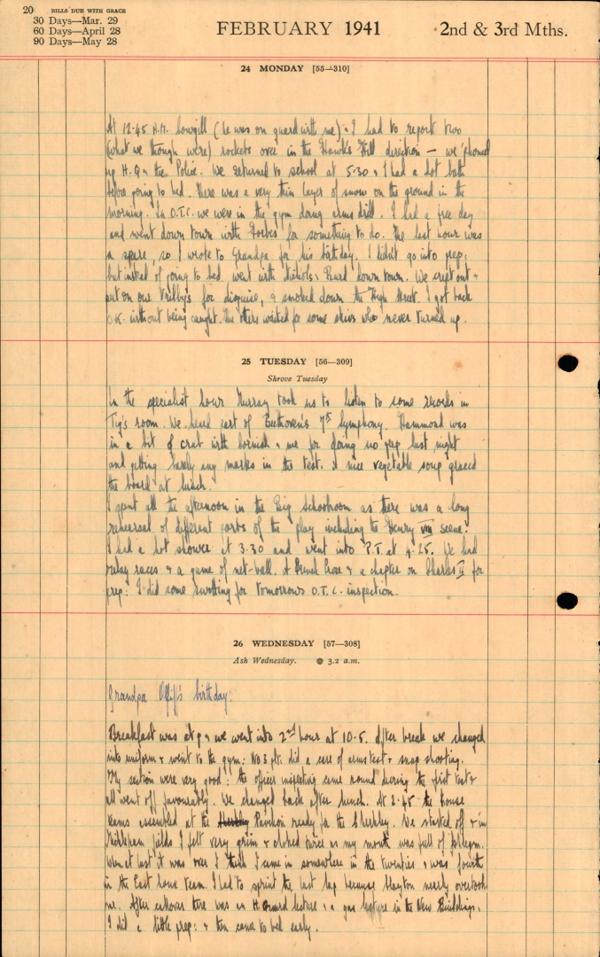 20 BILLS DUE WITH GRACE
30 Days—Mar. 29
60 Days—April 28
90 Days—May 28
FEBRUARY 1941
2nd & 3rd Mths.
24 MONDAY [55—310]
At 12.45 (he was on guard with me) & I had to report two
(what we though were) rockets over in the Hawk's Hill direction — we 'phoned
up H.Q & the Police. We returned to school at 5.30 & I had a hot bath
before going to bed. There was a very thin layer of snow on the ground in the
morning. In O.T.C. we were in the gym doing arms drill. I had a free day
and went down town with Forbes for something to do. The last hour was
a spare, so I wrote to Grandpa for his birthday. I didn't go into prep,
but instead of going to bed, went with & down town. We crept out &
put on our for disguise, & smoked down the High Street. I got back
O.K. without being caught. The others waited for some skivs who never turned up.
25 TUESDAY [56—309]
Shrove Tuesday
In the specialist hour Murray took us to listen to some records in
Tig's room. We heard part of Beethoven's 7th Symphony. Hammond was
in a bit of a with & me for doing no prep last night
and getting barely any marks in the test. A nice vegetable soup graced
the board at lunch.
I spent all the afternoon in the Big Schoolroom as there was a long
rehearsal of different parts of the play including the Henry VIII scene.
I had a hot shower at 3.30 and went into P.T. at 4.25. We had
relay races & a game of net-ball. A French Prose & a chapter on Charles II for
prep: I did some swotting for tomorrows O.T.C. inspection.
26 WEDNESDAY [57—308]
Ash Wednesday. 3.2 a.m.
Grandpa birthday.
Breakfast was at 9 & we went into 2nd hour at 10.5. After break we changed
into uniform & went to the gym: No 3 plt. did a care of arms test & snap shooting.
My section were very good: the officer inspecting came round during the first test &
all went off favourably. We changed back after lunch. At 2.45 the house
teams assembled at the Pavilion ready for the We started off & in
fields I felt very grim & choked twice as my mouth was full of phlegm.
When at last it was over I think I came in somewhere in the twenties & was fourth
in the East house team. I had to sprint the last lap because nearly overtook
me. After there was an H. Guard lecture & a gas lecture in the New Buildings.
I did a little prep: & then came to bed early.